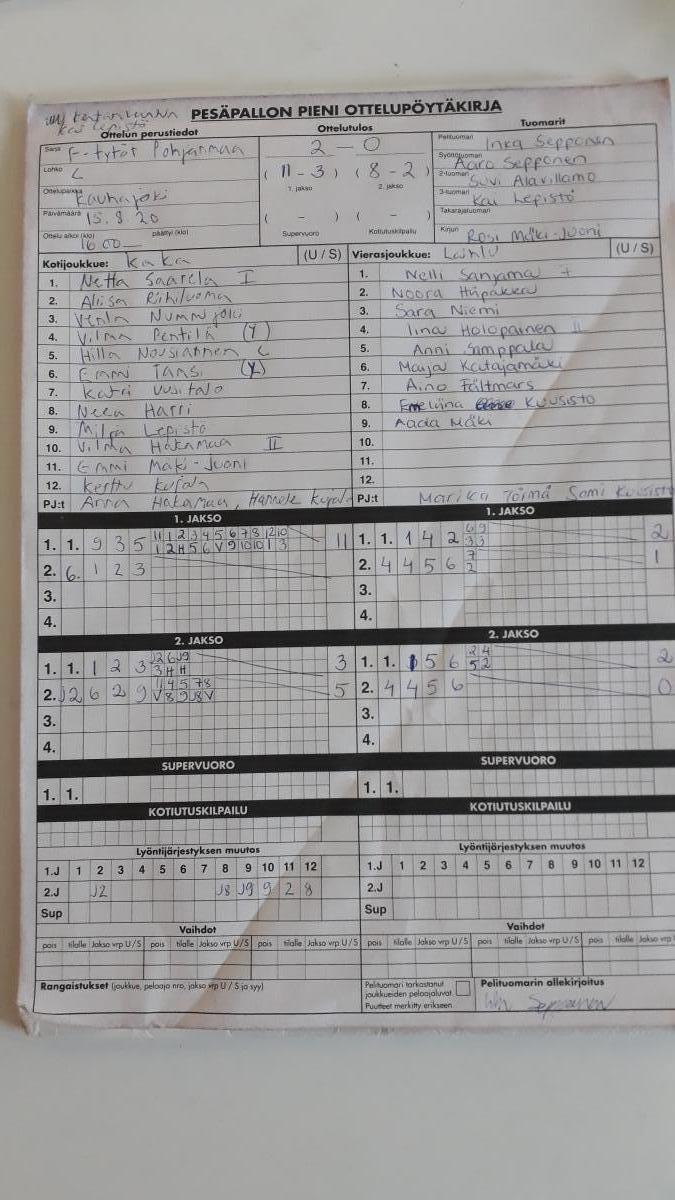 Kai Lepistö
PESÄPALLON PIENI OTTELUPÖYTÄKIRJA
Ottelun perustiedot
Ottelutulos
Tuomarit
Sarja F-tytöt Pohjanmaa
2 - 0
Pelituomari Inka Sepponen
Lohko C
( 11 - 3 ) ( 8 - 2 )
1. jakso 2. jakso
Syöttötuomari Aaro Sepponen
2-tuomari Suvi Alavillamo
Ottelupaikka Kauhajoki
3-tuomari Kai Lepistö
Päivämäärä 15.8.20
( - ) ( - )
Supervuoro Kotiutuskilpailu
Takarajatuomari
Ottelu alkoi (klo) 16.00 päättyi (klo)
Kirjuri Rosi Mäki-Juoni
Kotijoukkue: KaKa (U / S)
1. Netta Saarela I
2. Aliisa Riihiluoma
3. Venla Nummijoki
4. Vilma Penttilä
5. Hilla Nousiainen C
6. Emmi Tansi
7. Katri Uusitalo
8. Neea Harri
9. Milja Lepistö
10. Vilma Hakamaa II
11. Emmi Mäki-Juoni
12. Kerttu Kujala
PJ:t Anna Hakamaa, Hannele Kujala
Vierasjoukkue: (U / S)
1. Nelli
2. Noora
3. Sara Niemi
4. Iina Holopainen II
5. Anni
6. Maija Katajamäki
7. Aino Fältmars
8. Eveliina Kuusisto
9. Aada Mäki
10.
11.
12.
PJ:t Marika Törmä Sami Kuusisto
1. JAKSO
1. 1. 9 3 5 11 1 2 3 4 5 6 7 8 12 10 11
2. 6. 1 2 3
3.
4.
1. JAKSO
1. 1. 1 4 2 2
2. 4 4 5 6 7 2 1
3.
4.
2. JAKSO
1. 1. 1 2 3 J2 6 J9 3 H H 3
2. J2 6 2 9 11 4 5 7 8 V 8 9 J8 V 5
3.
4.
2. JAKSO
1. 1. 1 5 6 2 4 5 2 2
2. 4 4 5 6 0
3.
4.
SUPERVUORO
1. 1.
SUPERVUORO
1. 1.
KOTIUTUSKILPAILU
KOTIUTUSKILPAILU
Lyöntijärjestyksen muutos
1.J 1 2 3 4 5 6 7 8 9 10 11 12
2.J J2 J8 J9 9 2 8
Sup
Lyöntijärjestyksen muutos
1.J 1 2 3 4 5 6 7 8 9 10 11 12
2.J
Sup
Vaihdot
pois tilalle Jakso vrp U / S pois tilalle Jakso vrp U / S pois tilalle Jakso vrp U / S
Vaihdot
pois tilalle Jakso vrp U / S pois tilalle Jakso vrp U / S pois tilalle Jakso vrp
Rangaistukset (joukkue, pelaaja nro, jakso vrp U / S ja syy)
Pelituomari tarkastanut
joukkueiden pelaajaluvat.
Puutteet merkitty erikseen.
Pelituomarin allekirjoitus
Sepponen